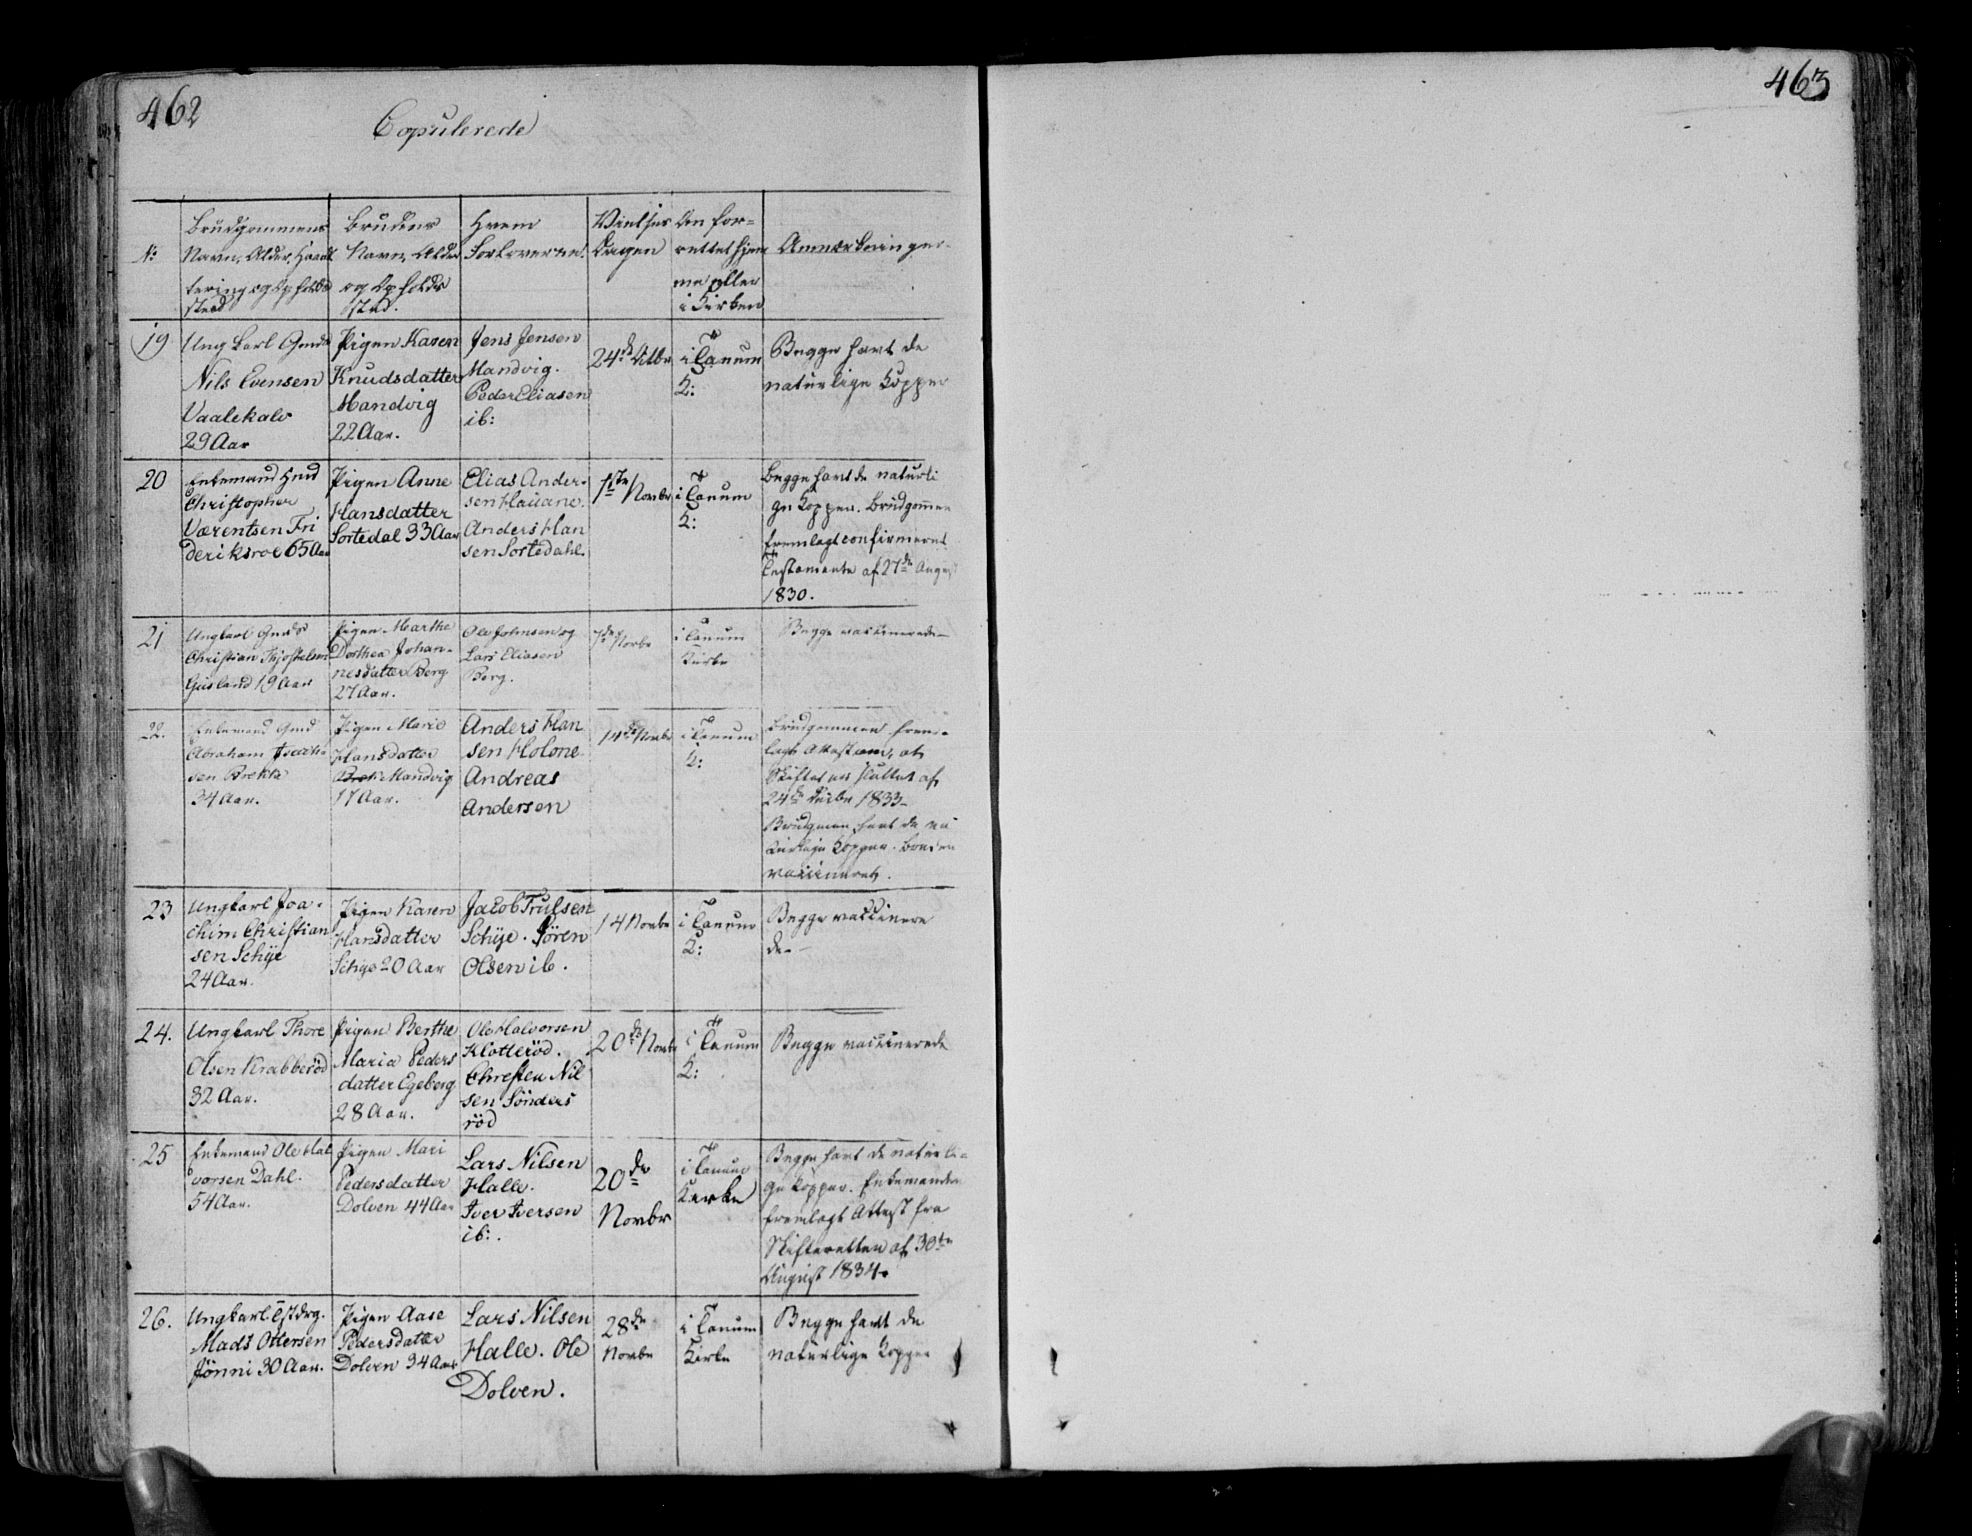 462
Copulerede
463
No
Brudgommens
Navn, Alder, Haand
tering og Opholds
sted
Brudens
Navn, Alder
og Opholds
sted.
Hvem
Forloverne
Vielses
Dagen
Om for-
rettet hjem
me eller
i Kirken
Anmærkninger.
19
Ungkarl Gmd
Nils Evensen
Vaalekalv
29 Aar
Pigen Karen
Knudsdatter
Mandvig
22 Aar.
Jens Jensen
Mandvig.
Peder Eliasen
ib:
24de Octbr
i Tanum
K:
Begge havt de
naturlige Kopper
20
Enkemand Hmd
Christopher
Værentsen Fri
deriksroe 65 Aar
Pigen Anne
Hansdatter
Sortedal 33 Aar
Elias Ander-
sen Hauane.
Anders Han
sen Sortedahl.
1ste Novbr
i Tanum
K:
Begge havt de naturli
ge Kopper. Brudgommen
fremlagt confirmeret
Testamente af 27de August
1830.
21
Ungkarl Gmds
Christian
Gusland 19 Aar
Pigen Marthe
Dorthea Johan-
nesdatter Berg
27 Aar.
Ole Johnsen og
Lars Eliasen
Berg.
7de Novbr
i Tanum
Kirke
Begge vaccinerede
22.
Enkemand Gmd
Abraham
sen Brekke
34 Aar.
Pigen Marie
Hansdatter
Mandvig
17 Aar.
Anders Han
sen Holone
Andreas
Andersen
14de Novbr
i Tanum
K:
Brudgommen frem-
lagt Attest om, at
Skiftet er sluttet af
24de 1833
Brudgmen havt de na
turlige Kopper. Bruden
vaccineret.
23
Ungkarl Joa-
chim Christian
sen Schije
24 Aar.
Pigen Karen
Hansdatter
Schije 20 Aar
Jacob Trulsen
Schije. Sören
Olsen ib.
14 Novbr
i Tanum
K:
Begge vaccinere
de.
24.
Ungkarl Thore
Olsen Krabberöd
32 Aar.
Pigen Berthe
Maria Peders
datter Egeberg
28 Aar.
Ole Halvorsen
Klotteröd.
Chresten Nil
sen Sönders
röd
20de Novbr
i Tanum
K:
Begge vaccinerede
25
Enkemand Ole Hal
vorsen Dahl.
54 Aar.
Pigen Mari
Pedersdatter
Dolven 44 Aar
Lars Nilsen
Halle.
Iver Iversen
ib:.
20de
Novbr
i Tanum
Kirke
Begge havt de naturli-
ge Kopper. Enkemanden
fremlagt Attest fra
Skifteretten af 30te
August 1834.
26.
Ungkarl
Mads Ottersen
Jönni 30 Aar.
Pigen Aase
Pedersdatter
Dolven 34 Aar
Lars Nilsen
Halle. Ole
Dolven.
28de
Novbr
i Tanum
Kirke
Begge havt de
naturlige Kopper